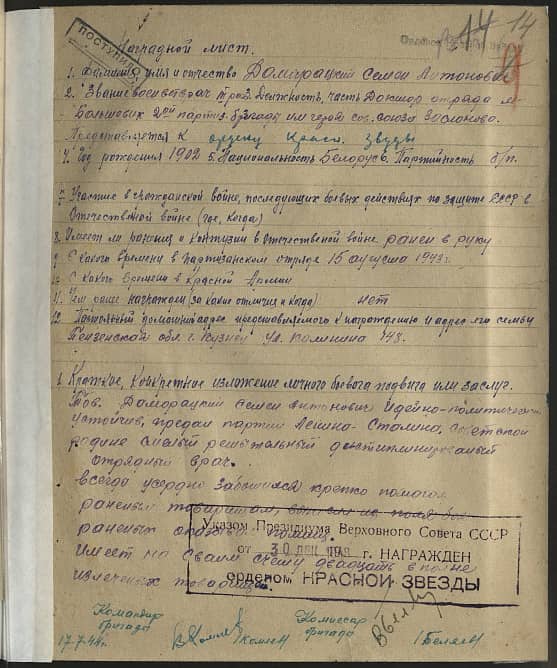 ПОСТУПИЛ
14 14
Наградной лист.
1. Фамилия имя и отчество Домарацкий Семен Антонович
2. Звание воентврач 3. Должность, часть Доктор отряда
партиз. бригады им героя сов. союза Заслонова.
Представляется к ордену Красн. Звезды
4. Год рождения 1902 5. Национальность Белорус 6. Партийность б/п.
7. Участие в гражданской войне, последующих боевых действиях по защите СССР в
Отечественной войне (где, когда)
8. Имеет ли ранения и контузии в отечественой войне ранен в руку
9. С какого времени в партизанском отряде 15 августа 1943 г.
10. С какого времени в Красной Армии
11. Чем ранее награжден (за какие отличия и когда) нет
12. Постоянный домашний адрес представляемого к награждению и адрес его семьи
Пензенской обл. г. Кузнец ул. Калинина 148.
1. Краткое, конкретное изложение личного боевого подвига или заслуг.
Тов. Домарацкий Семен Антонович идейно-политически
устойчив, предан партии Ленина-Сталина, советской
родине смелый решытельный дисциплинированый
отрядный врач.
всегда усердно крепко помогал
раненым товарищам, из поля боя
раненых
Имеет на своим счету двадцать вполне
излеченых товарищей.
Указом Президиума Верховного Совета СССР
от 30 ДЕК 1948 г. НАГРАЖДЕН
орденом КРАСНОЙ ЗВЕЗДЫ
Командир Комиссар
бригады бригады
17.7.44г. /Беляев